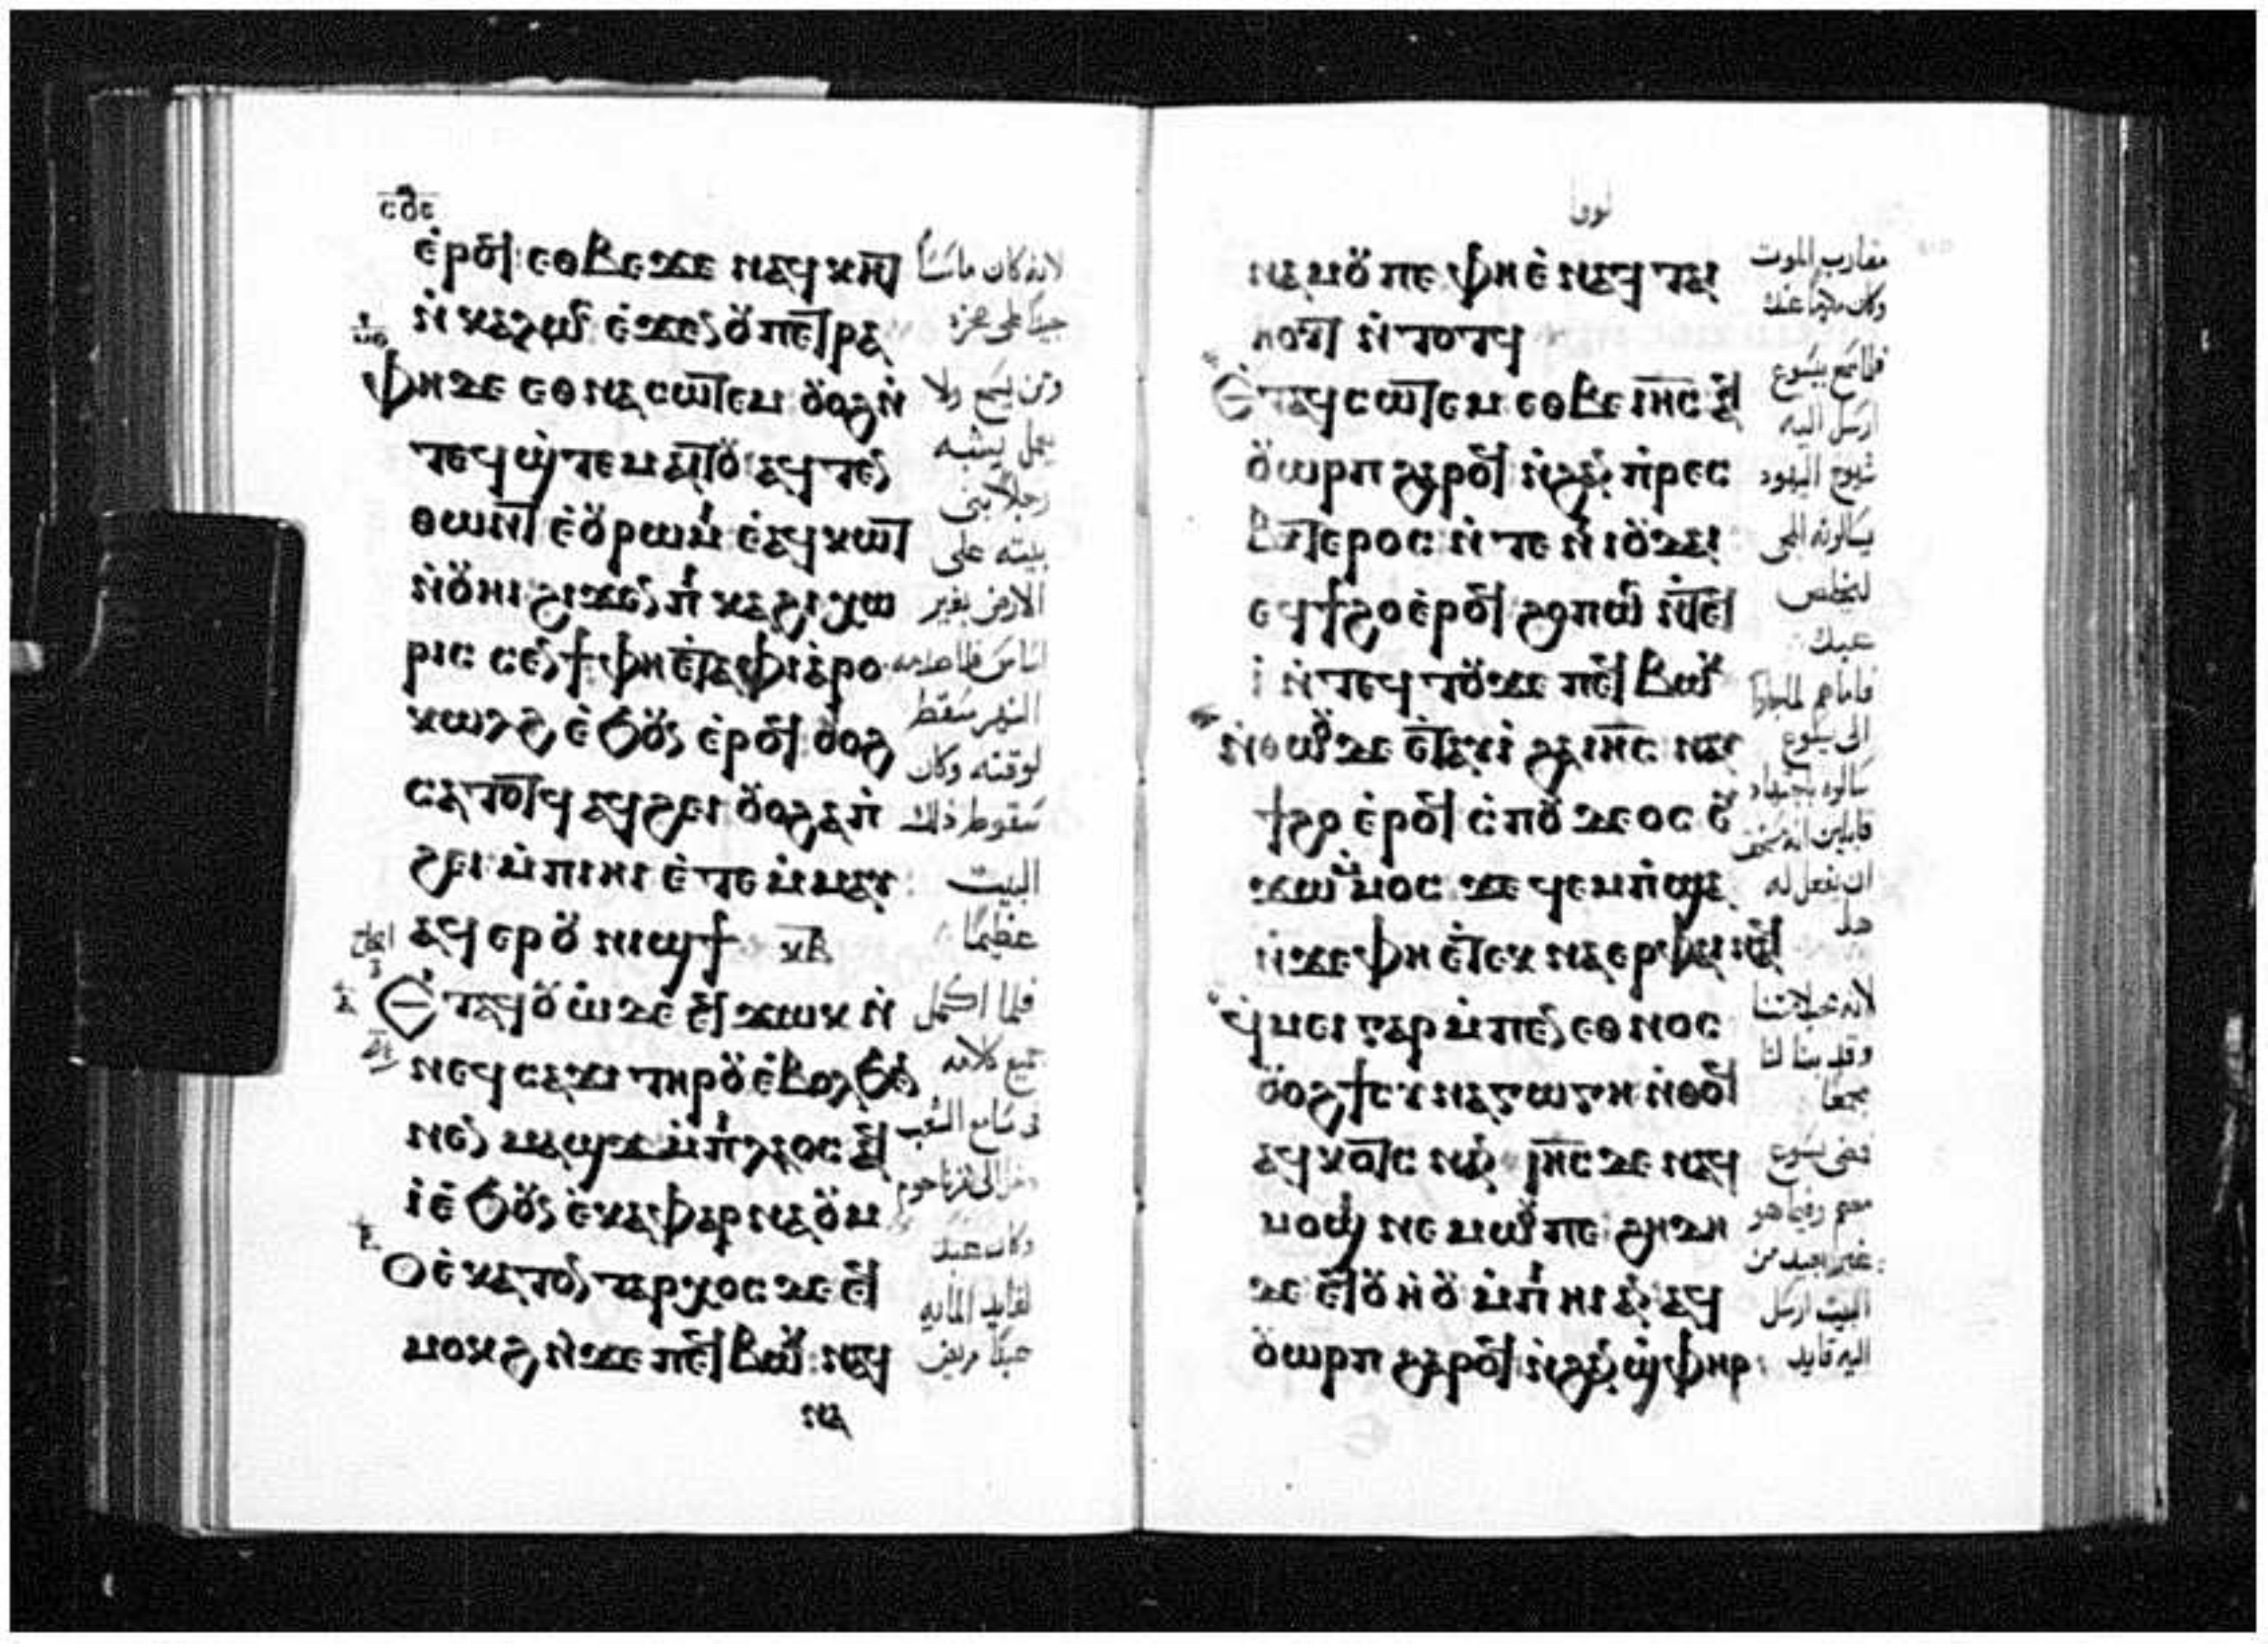 ⲥⲟⲉ
ⲉⲣⲟϥ ⲉⲑⲃⲉϫⲉ ⲛⲁϥⲕⲏⲧ
ⲛⲕⲁⲗⲱⲥ ⲉϫⲉⲛ ⲟⲩⲡⲉⲧⲣⲁ
ⲫⲏ ⲇⲉ ⲉⲑⲛⲁⲥⲱⲧⲉⲙ ⲟⲩⲟϩ ⲛ
ⲧⲉϥϣⲧⲉⲙⲁⲓⲧⲟⲩ ⲁϥⲧⲉⲛ
ⲑⲱⲛⲧ ⲉⲟⲩⲣⲱⲙⲓ ⲉⲁϥⲕⲱⲧ
ⲛⲟⲩⲏⲓ ϩⲓϫⲉⲛ ⲡⲕⲁϩⲓ ⲭⲱ
ⲣⲓⲥ ⲥⲉⲛϯ ⲫⲏ ⲉⲧⲁ ⲫⲓⲁⲣⲟ
ⲕⲱⲗϩ ⲉϧⲟⲩⲛ ⲉⲣⲟϥ ⲟⲩⲟϩ
ⲥⲁⲧⲟⲧϥ ⲁϥϩⲉⲓ ⲟⲩⲟϩ ⲁ ⲡ
ϩⲉⲓ ⲙⲡⲓⲏⲓ ⲉⲧⲉⲙⲙⲁⲩ
ⲁϥⲉⲣ ⲟⲩⲛⲓϣϯ ⲕⲃ
ⲉⲧⲁϥⲟⲩⲱ ⲇⲉ ⲉϥϫⲱⲕ ⲛ
ⲛⲉϥⲥⲁϫⲓ ⲧⲏⲣⲟⲩ ⲉⲃⲟⲗ ϧⲉⲛ
ⲛⲉⲛⲙⲁϣϫ ⲙⲡⲓⲗⲁⲟⲥ ⲁϥ
ⲓ ⲉϧⲟⲩⲛ ⲉⲕⲁⲫⲁⲣⲛⲁⲟⲩⲙ
ⲟⲩⲉⲕⲁⲧⲟⲛⲧⲁⲣⲭⲟⲥ ⲇⲉ ⲉϥ
ⲙⲟⲕϩ ⲛϫⲉ ⲡⲉϥⲃⲱⲕ ⲛⲁϥ
ⲛⲁ
لانه كان ماسسًا
جيدًا على صخره
ومن يسمع ولا
يعمل يشبه
رجلًا بنى
بيته على
الارض بغير
اساس
النهر سقط
لوقته وكان
سقوط ذلك
البيت
عظيمًا
فلما اكمل
جميع كلامه
فى مسامع الشعب
دخل الى كفرناحوم
وكان عبد
لقايد المايه
مريض
لوقا
ⲛⲁⲙⲟⲩ ⲡⲉ ⲫⲏ ⲉⲛⲁϥⲧⲁⲓ
ⲏⲟⲩⲧ ⲛⲧⲟⲧϥ
ⲉⲧⲁϥⲥⲱⲧⲉⲙ ⲉⲑⲃⲉ ⲓⲏⲥ ⲁϥ
ⲟⲩⲱⲣⲡ ϩⲁⲣⲟϥ ⲛϩⲁⲛⲡⲣⲉⲥ
ⲃⲩⲧⲉⲣⲟⲥ ⲛⲧⲉ ⲛⲓⲟⲩⲇⲁⲓ
ⲉϥϯϩⲟ ⲉⲣⲟϥ ϩⲟⲡⲱⲥ ⲛⲧⲉϥ
ⲓ ⲛⲧⲉϥⲧⲟⲩϫⲉ ⲡⲉϥⲃⲱⲕ
ⲛⲑⲱⲟⲩ ⲇⲉ ⲉⲧⲁⲩⲓ ϩⲁ ⲓⲏⲥ ⲛⲁⲩ
ϯϩⲟ ⲉⲣⲟϥ ⲥⲡⲟⲩⲇⲉⲟⲥ ⲉⲩ
ϫⲱ ⲙⲙⲟⲥ ϫⲉ ϥⲉⲙⲡϣⲁ
ⲛϫⲉ ⲫⲏ ⲉⲧⲉⲕⲛⲁⲉⲣ ⲫⲁⲓ ⲛⲁϥ
ϥⲙⲉⲓ ⲅⲁⲣ ⲙⲡⲉⲛⲉⲑⲛⲟⲥ
ⲟⲩⲟϩ ϯⲥⲩⲛⲁⲅⲱⲅⲏ ⲛⲑⲟϥ
ⲁϥⲕⲟⲧⲥ ⲛⲁⲛ ⲓⲏⲥ ⲇⲉ ⲛⲁϥ
ⲙⲟϣⲓ ⲛⲉⲙⲱⲟⲩ ⲡⲉ ϩⲏⲇⲏ
ⲇⲉ ⲉϥⲟⲩⲏⲟⲩ ⲙⲡⲓⲏⲓ ⲁⲛ ⲁϥ
ⲟⲩⲱⲣⲡ ϩⲁⲣⲟϥ ⲛϩⲁⲛϣⲫⲏⲣ
مقارب الموت
وكان كريمًا عنده
فلما سمع بيسوع
ارسل اليه
شيوخ اليهود
يسالونه المجى
ليخلص
عبده
فاما هم لما جاوا
الى يسوع
سالوه باجتهاد
قايلين انه مستحق
ان تفعل له
هذا
لانه محب لامتنا
وقد بنا لنا
مجمعًا
فمضى يسوع
معهم وفيما هو
غير بعيد من
البيت ارسل
اليه قايد